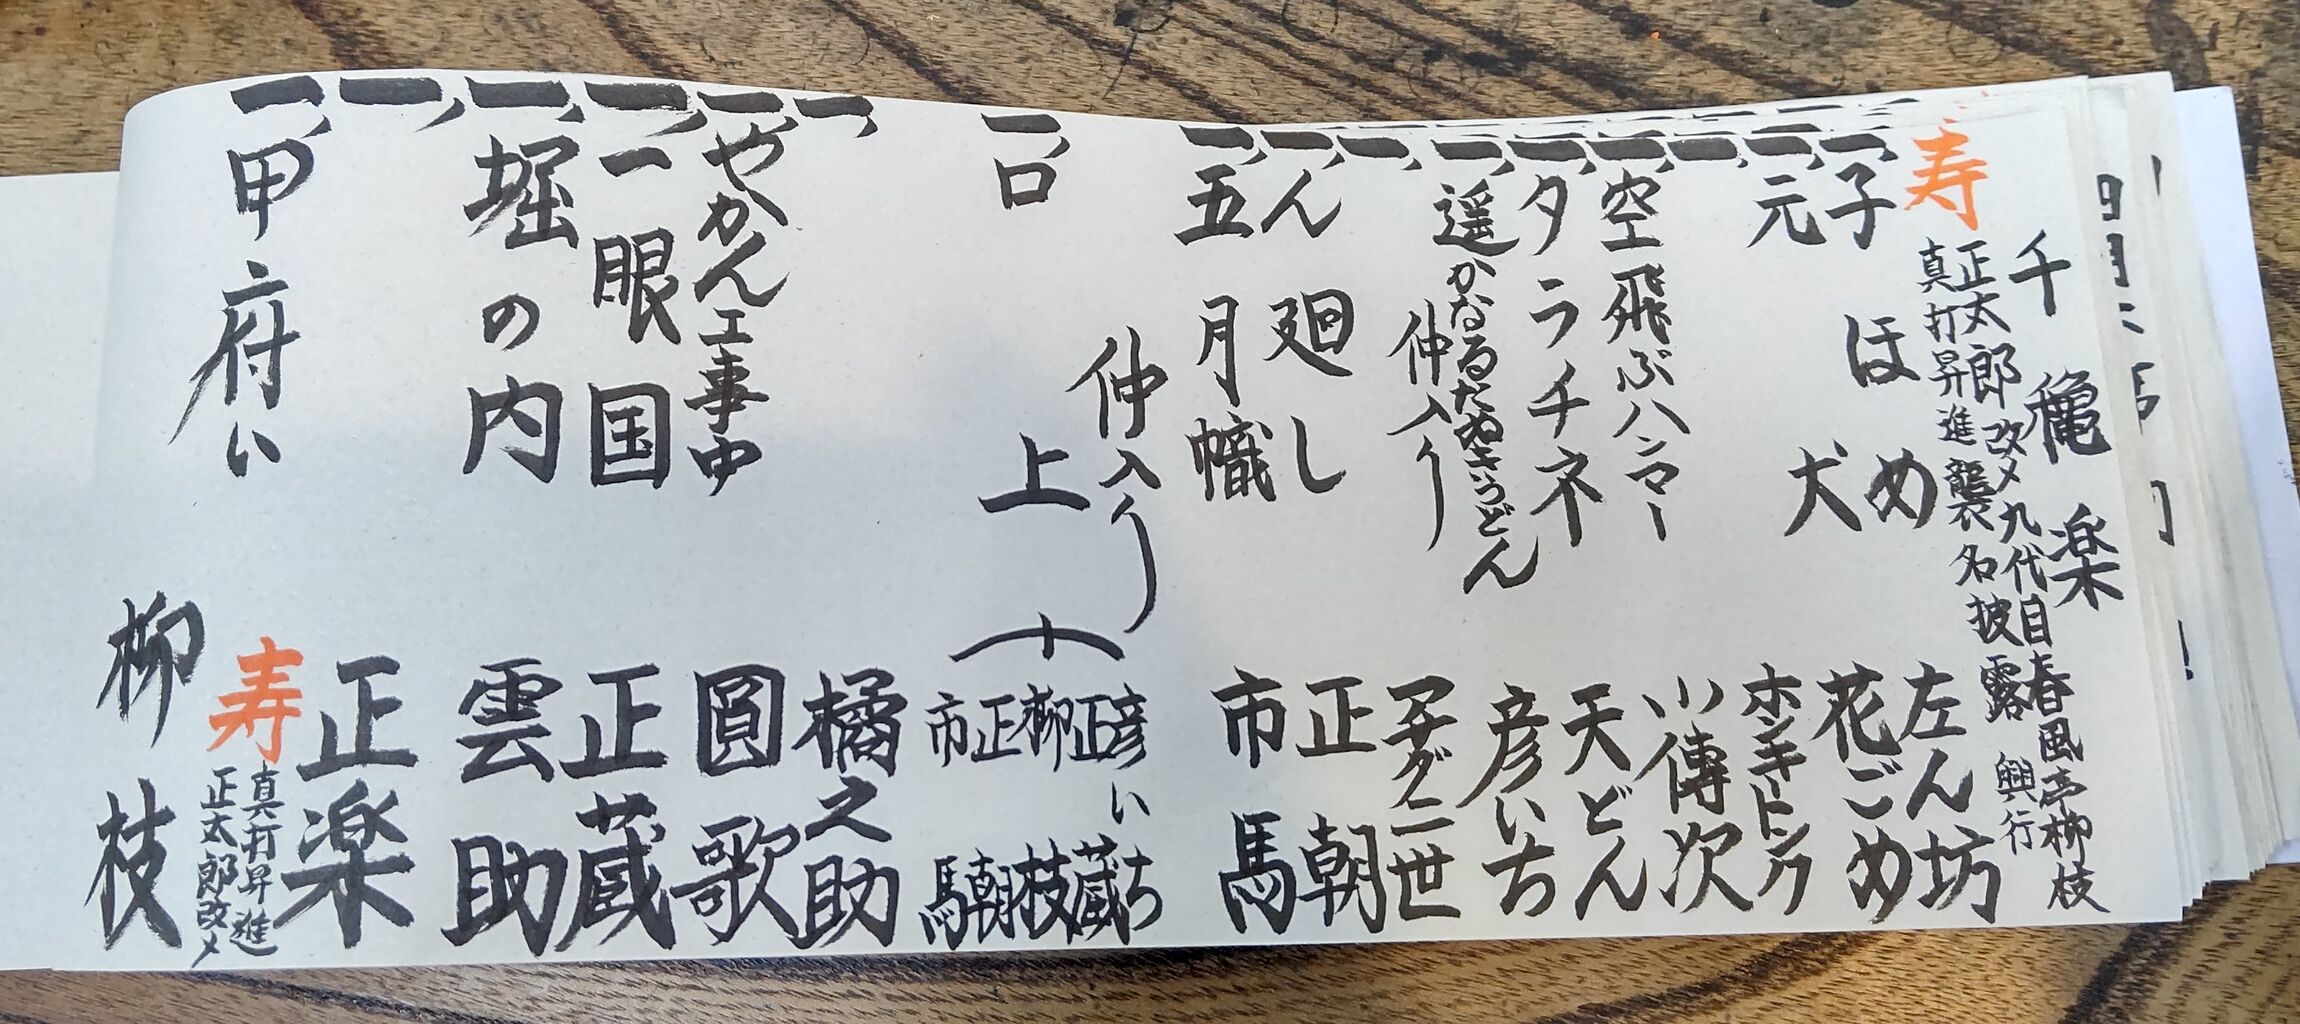 千穐楽
寿 正太郎改メ九代目春風亭柳枝
真打昇進襲名披露興行
一、子ほめ 左ん坊
一、元犬 花ごめ
一、 ホンキートンク
一、空飛ぶハンマー 小傳次
一、タラチネ 天どん
一、遥かなるたぬきうどん 彦いち
仲入り
一、 アサダ二世
一、ん廻し 正朝
一、五月幟 市馬
仲入り
一、口上 彦いち
正蔵
柳枝
正朝
市馬
一、 橘之助
一、やかん工事中 圓歌
一、一眼国 正蔵
一、堀の内 雲助
一、 正楽
一、甲府い 寿 真打昇進
正太郎改メ
柳枝